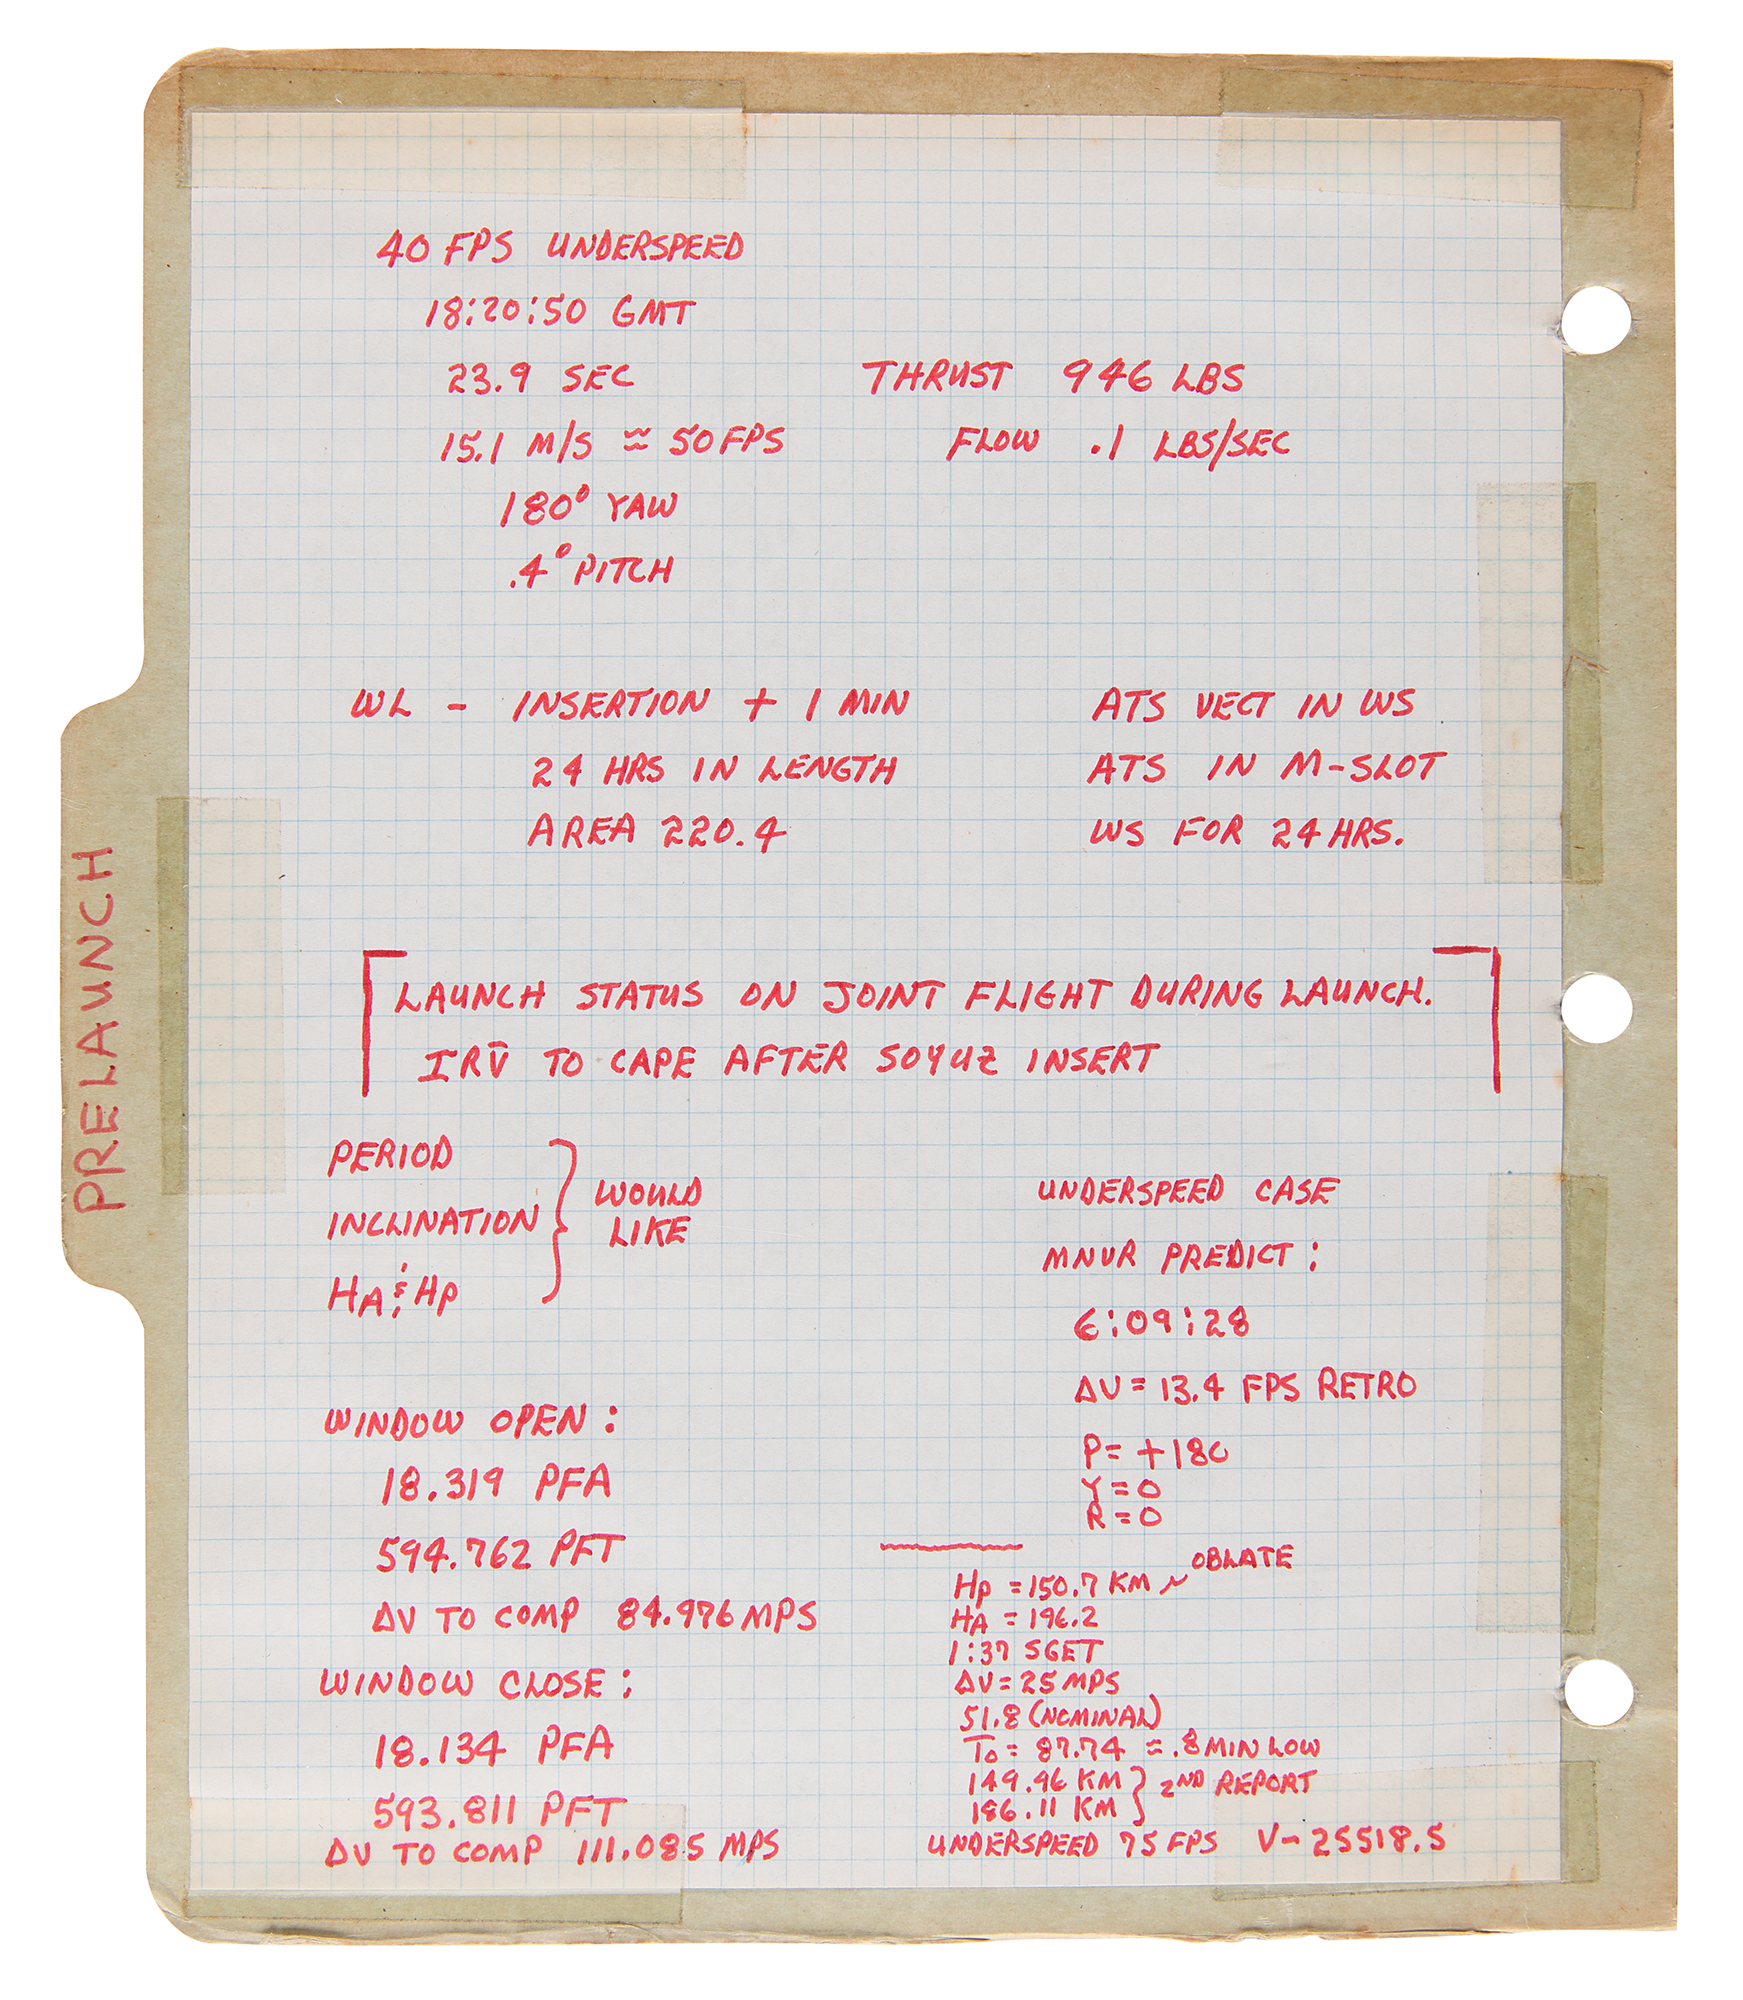 PRELAUNCH
40 FPS UNDERSPEED
18:20:50 GMT
23.9 SEC
15.1 M/S ≈ 50 FPS
180° YAW
.4° PITCH
THRUST 946 LBS
FLOW .1 LBS/SEC
WL - INSERTION + 1 MIN
24 HRS IN LENGTH
AREA 220.4
ATS VECT IN WS
ATS IN M-SLOT
WS FOR 24 HRS.
LAUNCH STATUS ON JOINT FLIGHT DURING LAUNCH.
IRV̄ TO CAPE AFTER SOYUZ INSERT
PERIOD
INCLINATION
HA & HP
WOULD
LIKE
WINDOW OPEN:
18.319 PFA
594.762 PFT
ΔV TO COMP 84.976 MPS
WINDOW CLOSE:
18.134 PFA
593.811 PFT
ΔV TO COMP 111.085 MPS
UNDERSPEED CASE
MNVR PREDICT:
6:09:28
ΔV = 13.4 FPS RETRO
P = +180
Y = 0
R = 0
OBLATE
HP = 150.7 KM ~
HA = 196.2
1:37 SGET
ΔV = 25 MPS
51.8 (NOMINAL)
To = 87.74 ≈ .8 MIN LOW
149.96 KM } 2ND REPORT
186.11 KM
UNDERSPEED 75 FPS V- 25518.5